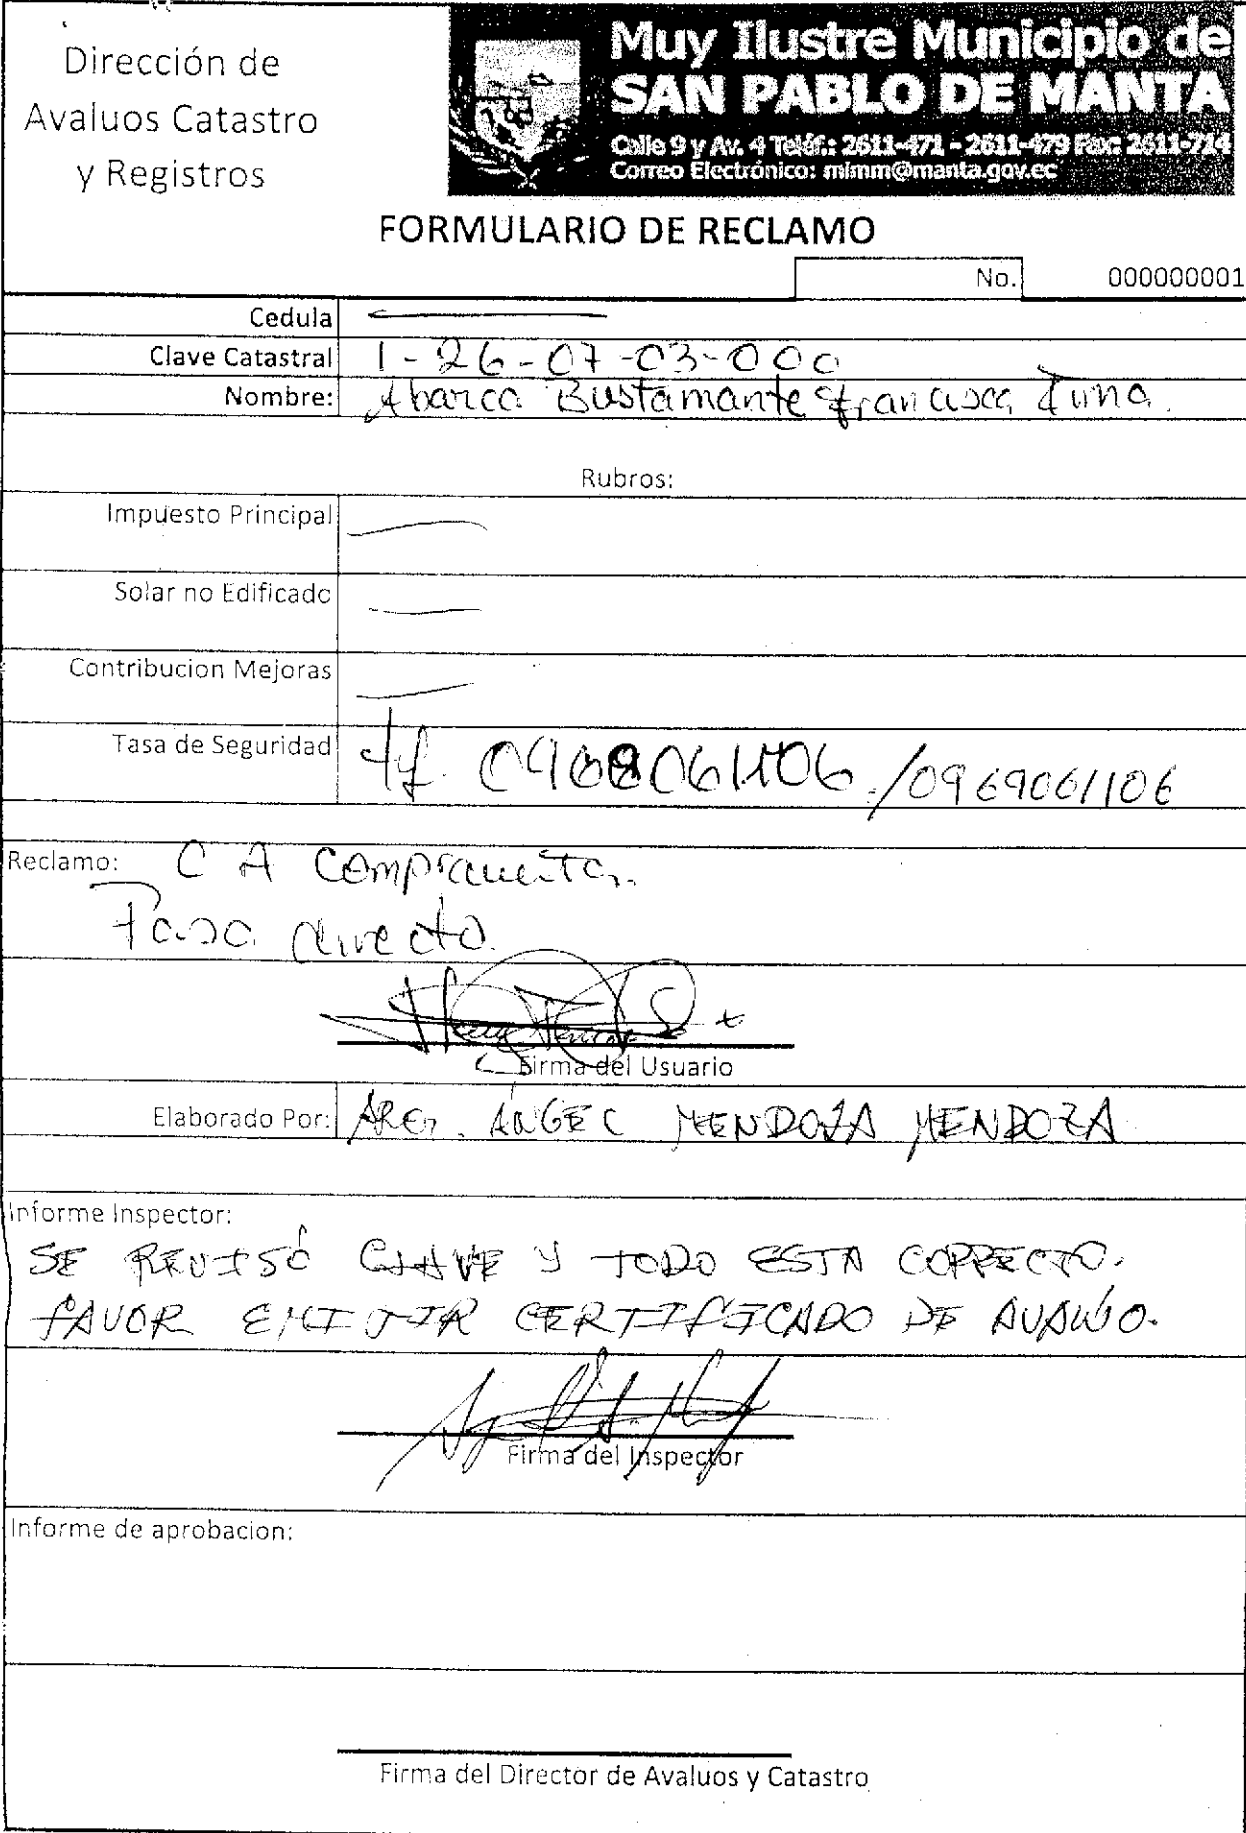 Dirección de
Avaluos Catastro
y Registros
Muy Ilustre Municipio de
SAN PABLO DE MANTA
Calle 9 y Av. 4 Teléf.: 2611-471 - 2611-479 Fax: 2611-714
Correo Electrónico: mimm@manta.gov.ec
FORMULARIO DE RECLAMO
No. 000000001
Cedula
Clave Catastral 1-26-07-03-000
Nombre: Abarca Bustamante Francisca
Rubros:
Impuesto Principal
Solar no Edificado
Contribucion Mejoras
Tasa de Seguridad /0969061106
Reclamo: C A Compraventa.
Pasa directo.
Firma del Usuario
Elaborado Por: ARQ. ÁNGEL MENDOZA MENDOZA
Informe Inspector:
SE REVISÓ CLAVE Y TODO ESTA CORRECTO.
FAVOR EMITIR CERTIFICADO DE AVALÚO.
Firma del Inspector
Informe de aprobacion:
Firma del Director de Avaluos y Catastro